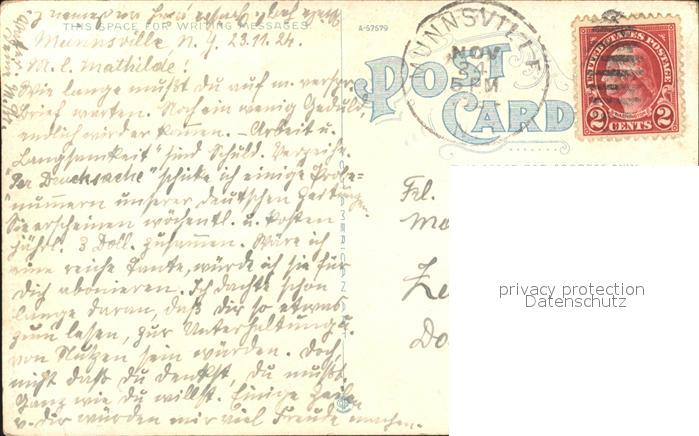 THIS SPACE FOR WRITING MESSAGES
A-57579
POST CARD
MUNNSVILLE
NOV
24
5 PM
UNITED STATES POSTAGE
2 CENTS 2
Munnsville N. Y. 23.11.24.
M. l. Mathilde!
Wie lange mußt du auf m. verspr.
Brief warten. Noch ein wenig Geduld
endlich wird er kommen. – Arbeit u.
Langsamkeit" sind Schuld. Verzeihe.
"Per Drucksache" schicke ich einige Probe-
nummern unserer deutschen Zeitung
Sie erscheinen wöchentl. u. kosten
jährl. 3 Doll. zusammen. Wäre ich
eine reiche Tante, würde ich sie für
dich abonieren. Ich dachte schon
lange daran, daß dir so etwas
zum lesen, zur Unterhaltung u.
von Nutzen sein würden. Doch,
nicht daß du denkst, du mußt.
Ganz wie du willst. Einige Zeilen
v. dir würden mir viel Freude machen.
Frl.
privacy protection
Datenschutz